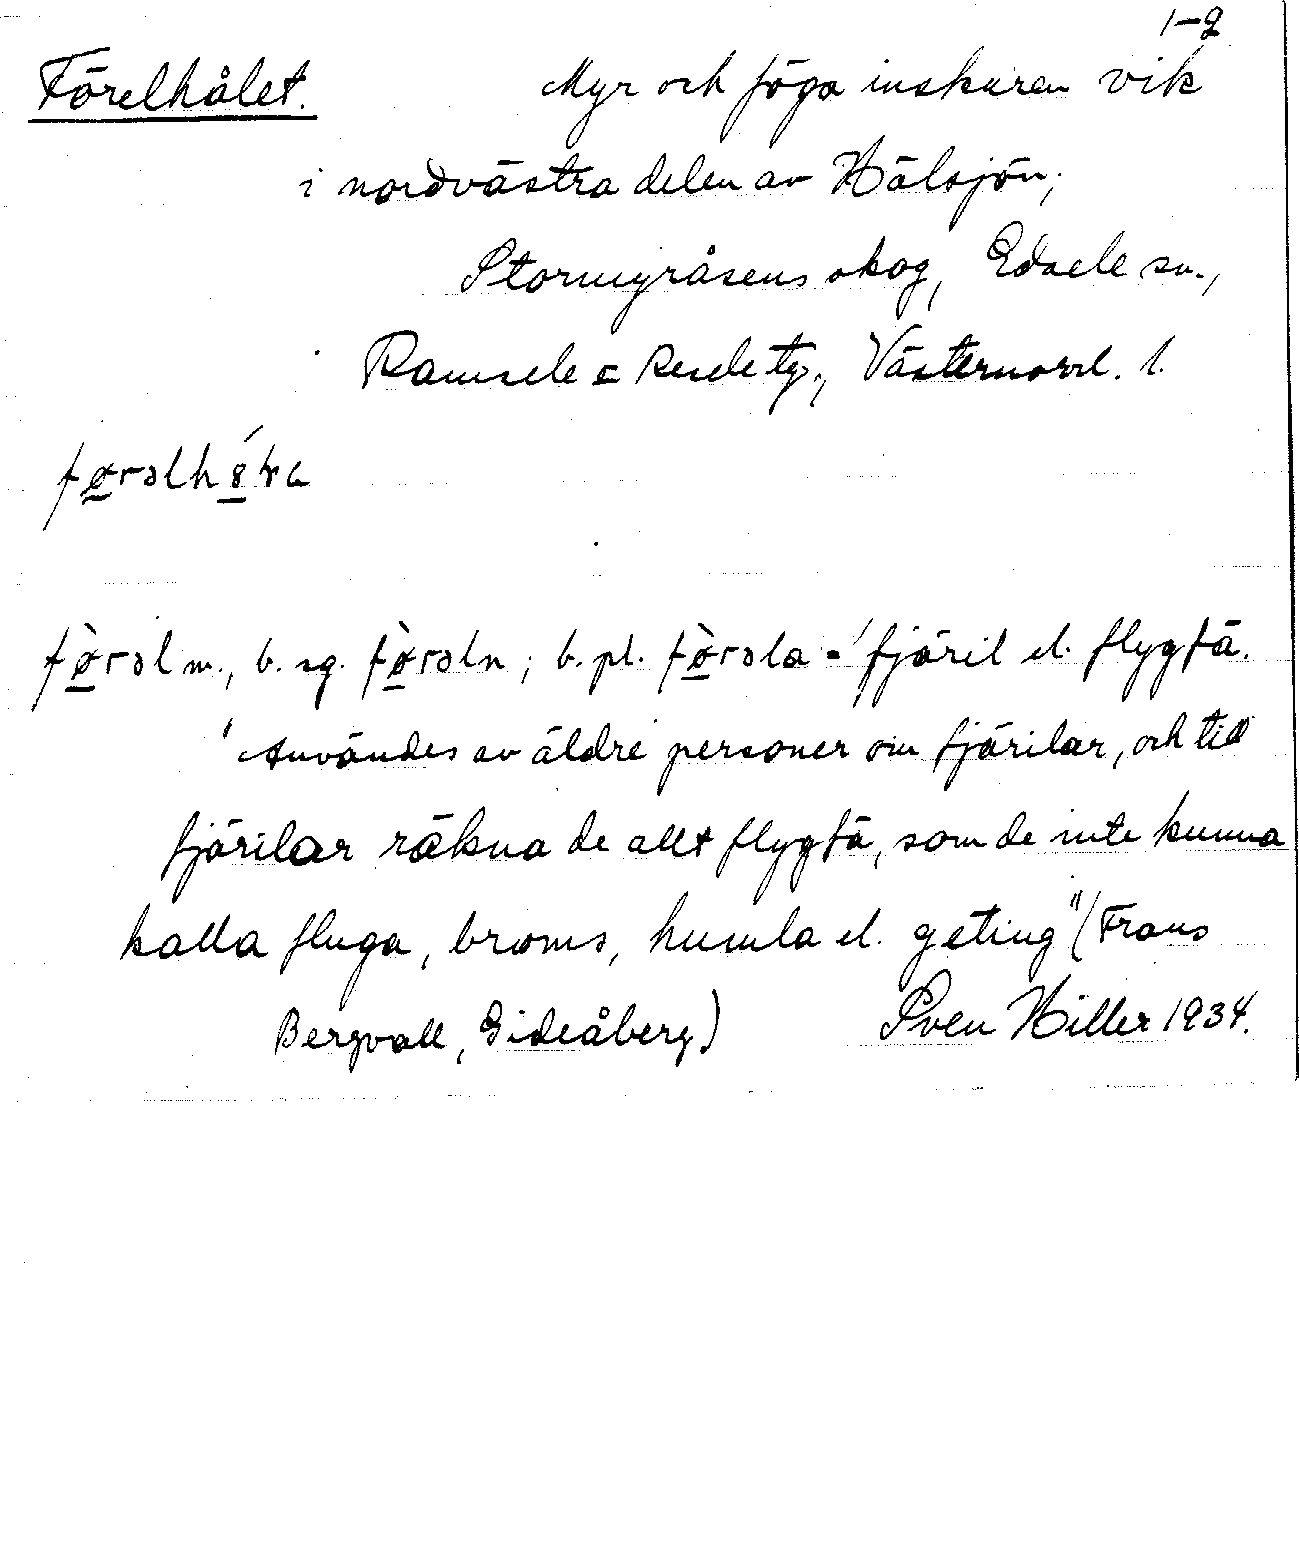 1-2
Förelhålet. Myr och föga inskuren vik
i nordvästra delen av Hälsjön;
Stormyråsens skog, Edsele sn.,
Ramsele o Resele tg., Västernorrl. l.
før&#601;lh
fø̀rəl m., b. sg. fø̀rəln ; b. pl. fø̀rəla = 'fjäril el. flygfä.
"Användes av äldre personer om fjärilar, och till
fjärilar räkna de allt flygfä, som de inte kunna
kalla fluga, broms, humla el. geting" (Frans
Bergvall, Gideåberg) Sven Hiller 1934.